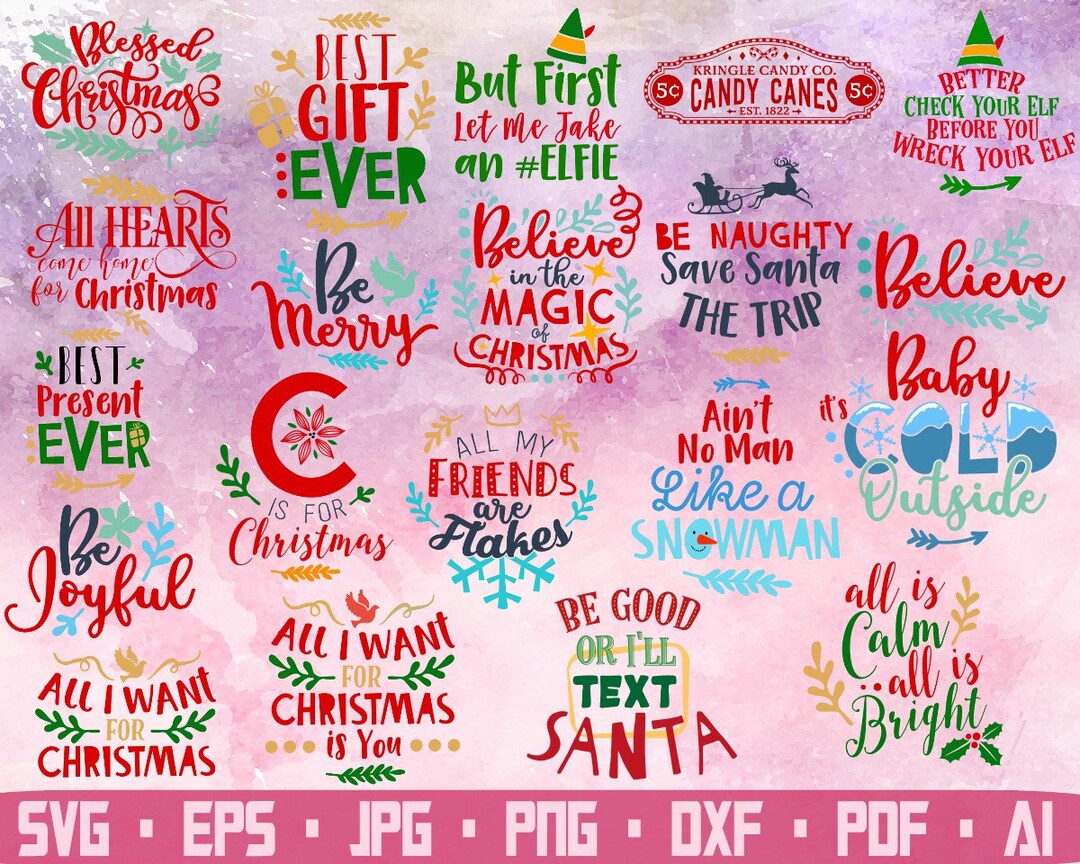 Blessed
Christmas
BEST
GIFT
EVER
But First
Let Me Take
an #ELFIE
KRINGLE CANDY CO.
5¢ CANDY CANES 5¢
EST. 1822
BETTER
CHECK YOUR ELF
BEFORE YOU
WRECK YOUR ELF
All HEARTS
come home
for Christmas
Be
Merry
Believe
in the
MAGIC
of
CHRISTMAS
BE NAUGHTY
Save Santa
THE TRIP
Believe
BEST
Present
EVER
C
IS FOR
Christmas
ALL MY
FRIENDS
are
Flakes
Ain't
No Man
Like a
SNOWMAN
Baby
it's COLD
Outside
Be
Joyful
ALL I WANT
FOR
CHRISTMAS
ALL I WANT
FOR
CHRISTMAS
is You
BE GOOD
OR I'LL
TEXT
SANTA
all is
Calm
all is
Bright
SVG · EPS · JPG · PNG · DXF · PDF · AI